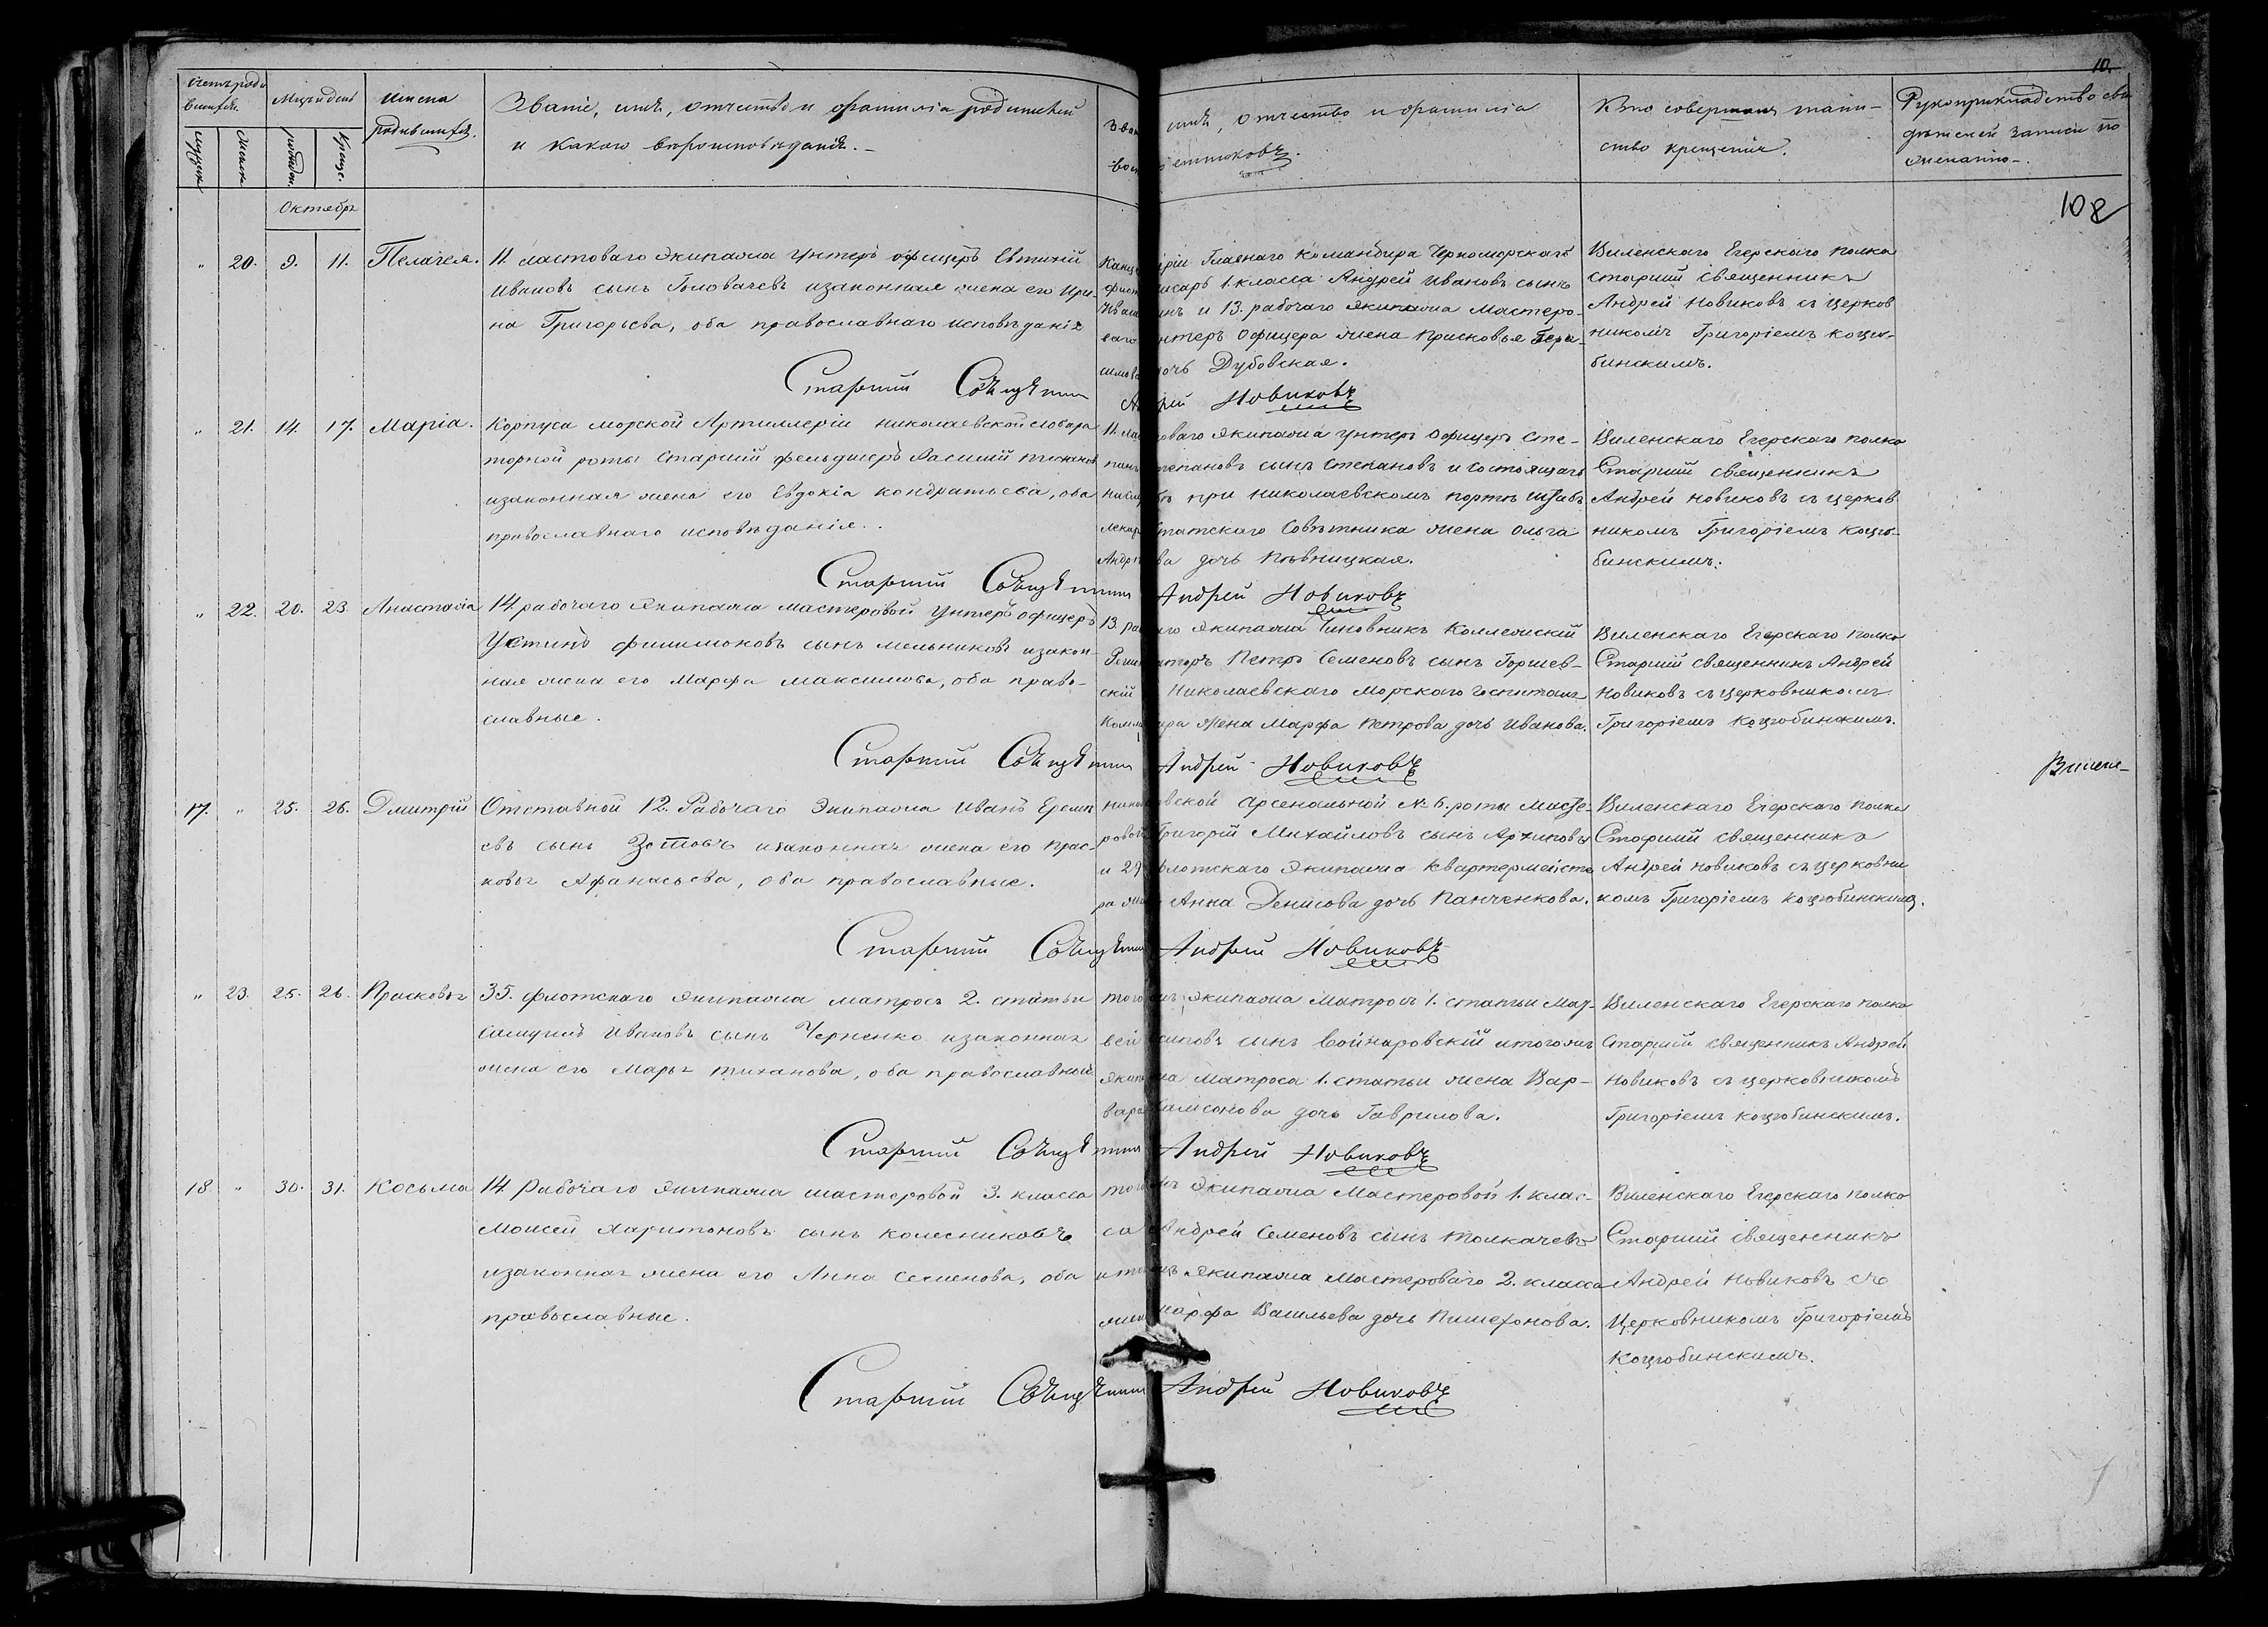 10.
Счетъ роди
вшихся.
Мужеск.
Женск.
Мцъ и день
рожден.
Крещ.
Имена
родившихся.
Званіе, имя, отчество и фамилія родителей
и какого вероисповеданія. –
имя, отчество и фамилія
Кто совершалъ таин-
ство крещенія.
Рукоприкладство сви
дѣтелей записи по
желанію –.
108
Октябрь
„ 20. 9. 11. Пелагея.
11. ластоваго экипажа Унтеръ офицеръ Евтихій
Ивановъ сынъ Головачевъ и законная жена его Ири-
на Григорьева, оба православнаго исповѣданія
Главнаго Командира Черноморскаго
писарь 1. класса Андрей Ивановъ сынъ
и 13. рабочаго экипажа Мастеро-
ваго унтеръ офицера жена Прасковья Гера-
симова дочь Дубовская.
Виленскаго Егерскаго полка
старшій Священникъ
Андрей Новиковъ съ церков
никомъ Григоріемъ Коцю-
бинскимъ.
Старшій Священникъ Андрей Новиковъ
„ 21. 14. 17. Марія.
Корпуса морской Артиллеріи николаевской лобора
торной роты Старшій фельдшеръ Василій
и законная жена его Евдокія Кондратьева, оба
православнаго исповѣданія..
11. ластоваго экипажа унтеръ офицеръ Сте-
панъ Степановъ сынъ Степановъ и состоящаго
при николаевскомъ портѣ Штабъ
лекаря Статскаго Совѣтника жена Ольга
дочь Пѣвницкая.
Виленскаго Егерскаго полка
Старшій Священникъ
Андрей Новиковъ съ церков
никомъ Григоріемъ Коцю-
бинскимъ.
Старшій Священникъ Андрей Новиковъ
„ 22. 20. 23. Анастасія
14 рабочаго экипажа мастеровой Унтеръ офицеръ
Устинъ Филимоновъ сынъ Мельниковъ и закон-
ная жена его Марфа Максимова, оба право-
славные.
13. рабочаго экипажа Чиновникъ Коллежскій
Регистраторъ Петръ Семеновъ сынъ
скій Николаевскаго Морскаго госпиталя
жена Марфа Петрова дочь Иванова.
Виленскаго Егерскаго полка
Старшій священникъ Андрей
Новиковъ съ церковникомъ
Григоріемъ Коцюбинскимъ.
Старшій Священникъ Андрей Новиковъ
17. „ 25. 26. Дмитрій
Отставной 12. Рабочаго Экипажа Иванъ Ереме
евъ сынъ Зотовъ и законная жена его Прас-
ковья Афанасьева, оба православные.
николаевской Арсенальной № 6. роты Масте-
ровой Григорій Михайловъ сынъ Архиповъ
и 29 флотскаго экипажа квартермейсте
ра жена Анна Денисова дочь Панченкова.
Виленскаго Егерскаго полка
Старшій священникъ
Андрей Новиковъ съ церковни
комъ Григоріемъ Коцюбинскимъ.
Старшій Священникъ Андрей Новиковъ
„ 23. 25. 26. Прасковья
35. флотскаго экипажа матросъ 2. статьи
Самуилъ Ивановъ сынъ Черненко и законная
жена его Марья Тиханова, оба православные
того жъ экипажа Матросъ 1. статьи Мат-
вей Осиповъ сынъ Войнаровскій и того жъ
экипажа Матроса 1. статьи жена Вар-
вара Самсонова дочь Гаврилова.
Виленскаго Егерскаго полка
Старшій священникъ Андрей
Новиковъ съ церковникомъ
Григоріемъ Коцюбинскимъ.
Старшій Священникъ Андрей Новиковъ
18 „ 30. 31. Косьма
14 Рабочаго экипажа мастеровой 3. класса
Моисей Харитоновъ сынъ Колесниковъ
и законная жена его Анна Семенова, оба
православные.
того жъ экипажа Мастеровой 1. клас-
са Андрей Семеновъ сынъ Толкачевъ
и того жъ экипажа Мастероваго 2. класса
жена Марфа Васильева дочь
Виленскаго Егерскаго полка
Старшій священникъ
Андрей Новиковъ съ
Церковникомъ Григоріемъ
Коцюбинскимъ.
Старшій Священникъ Андрей Новиковъ
Вилен-